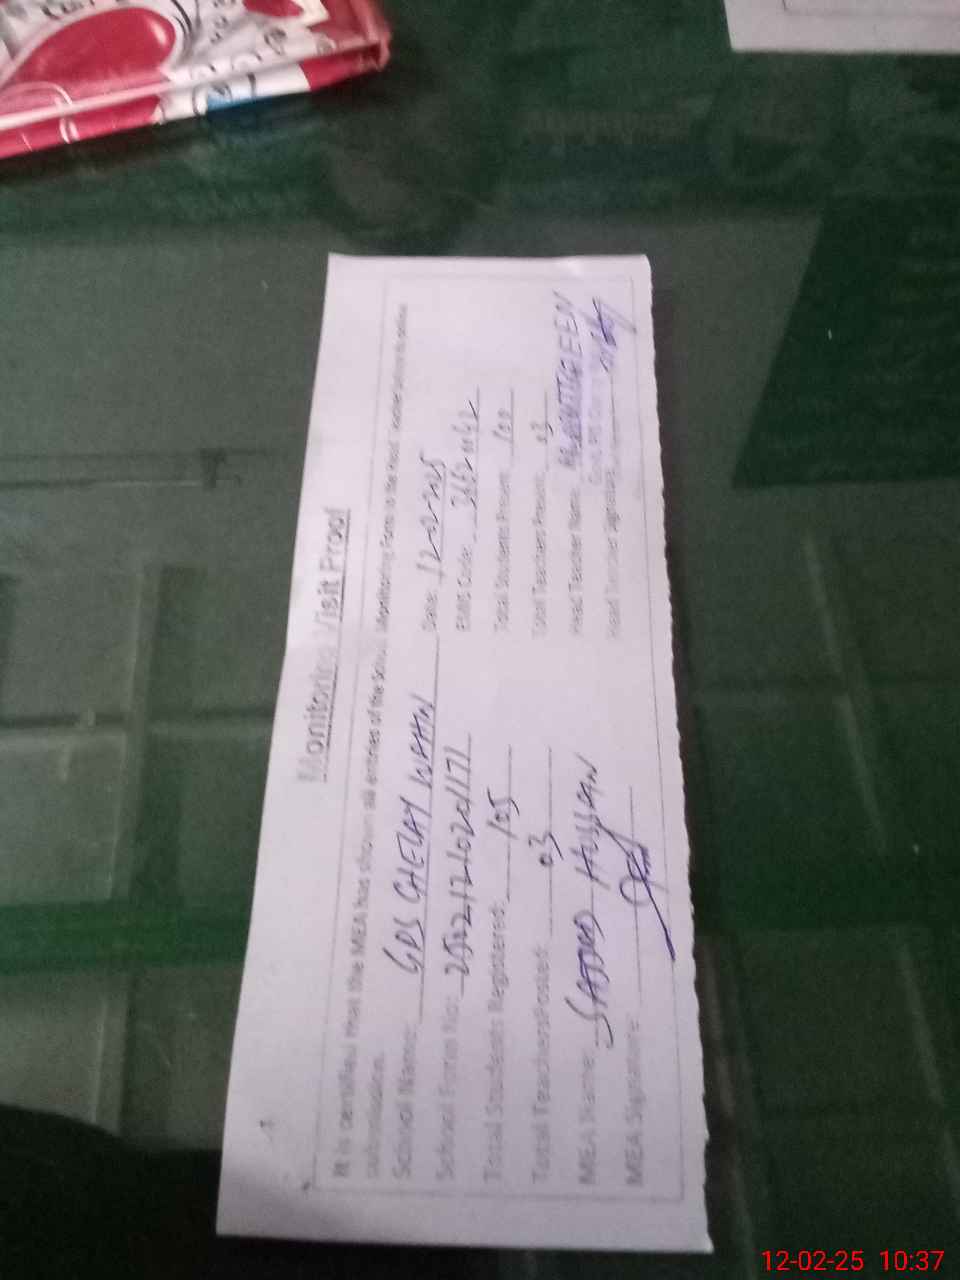 Monitoring Visit Proof
It is certified that the MEA has shown all entries of the School Monitoring Form to the Head Teacher before its online
submission.
School Name: GPS GHELAY WAHN Date: 12-02-2025
School Form No: EMIS Code:
Total Students Registered: 105 Total Students Present: 100
Total Teachers Posted: 03 Total Teachers Present: 03
MEA Name: SAJJAD HUSSAIN Head Teacher Name:
MEA Signature: Head Teacher Signature:
12-02-25 10:37